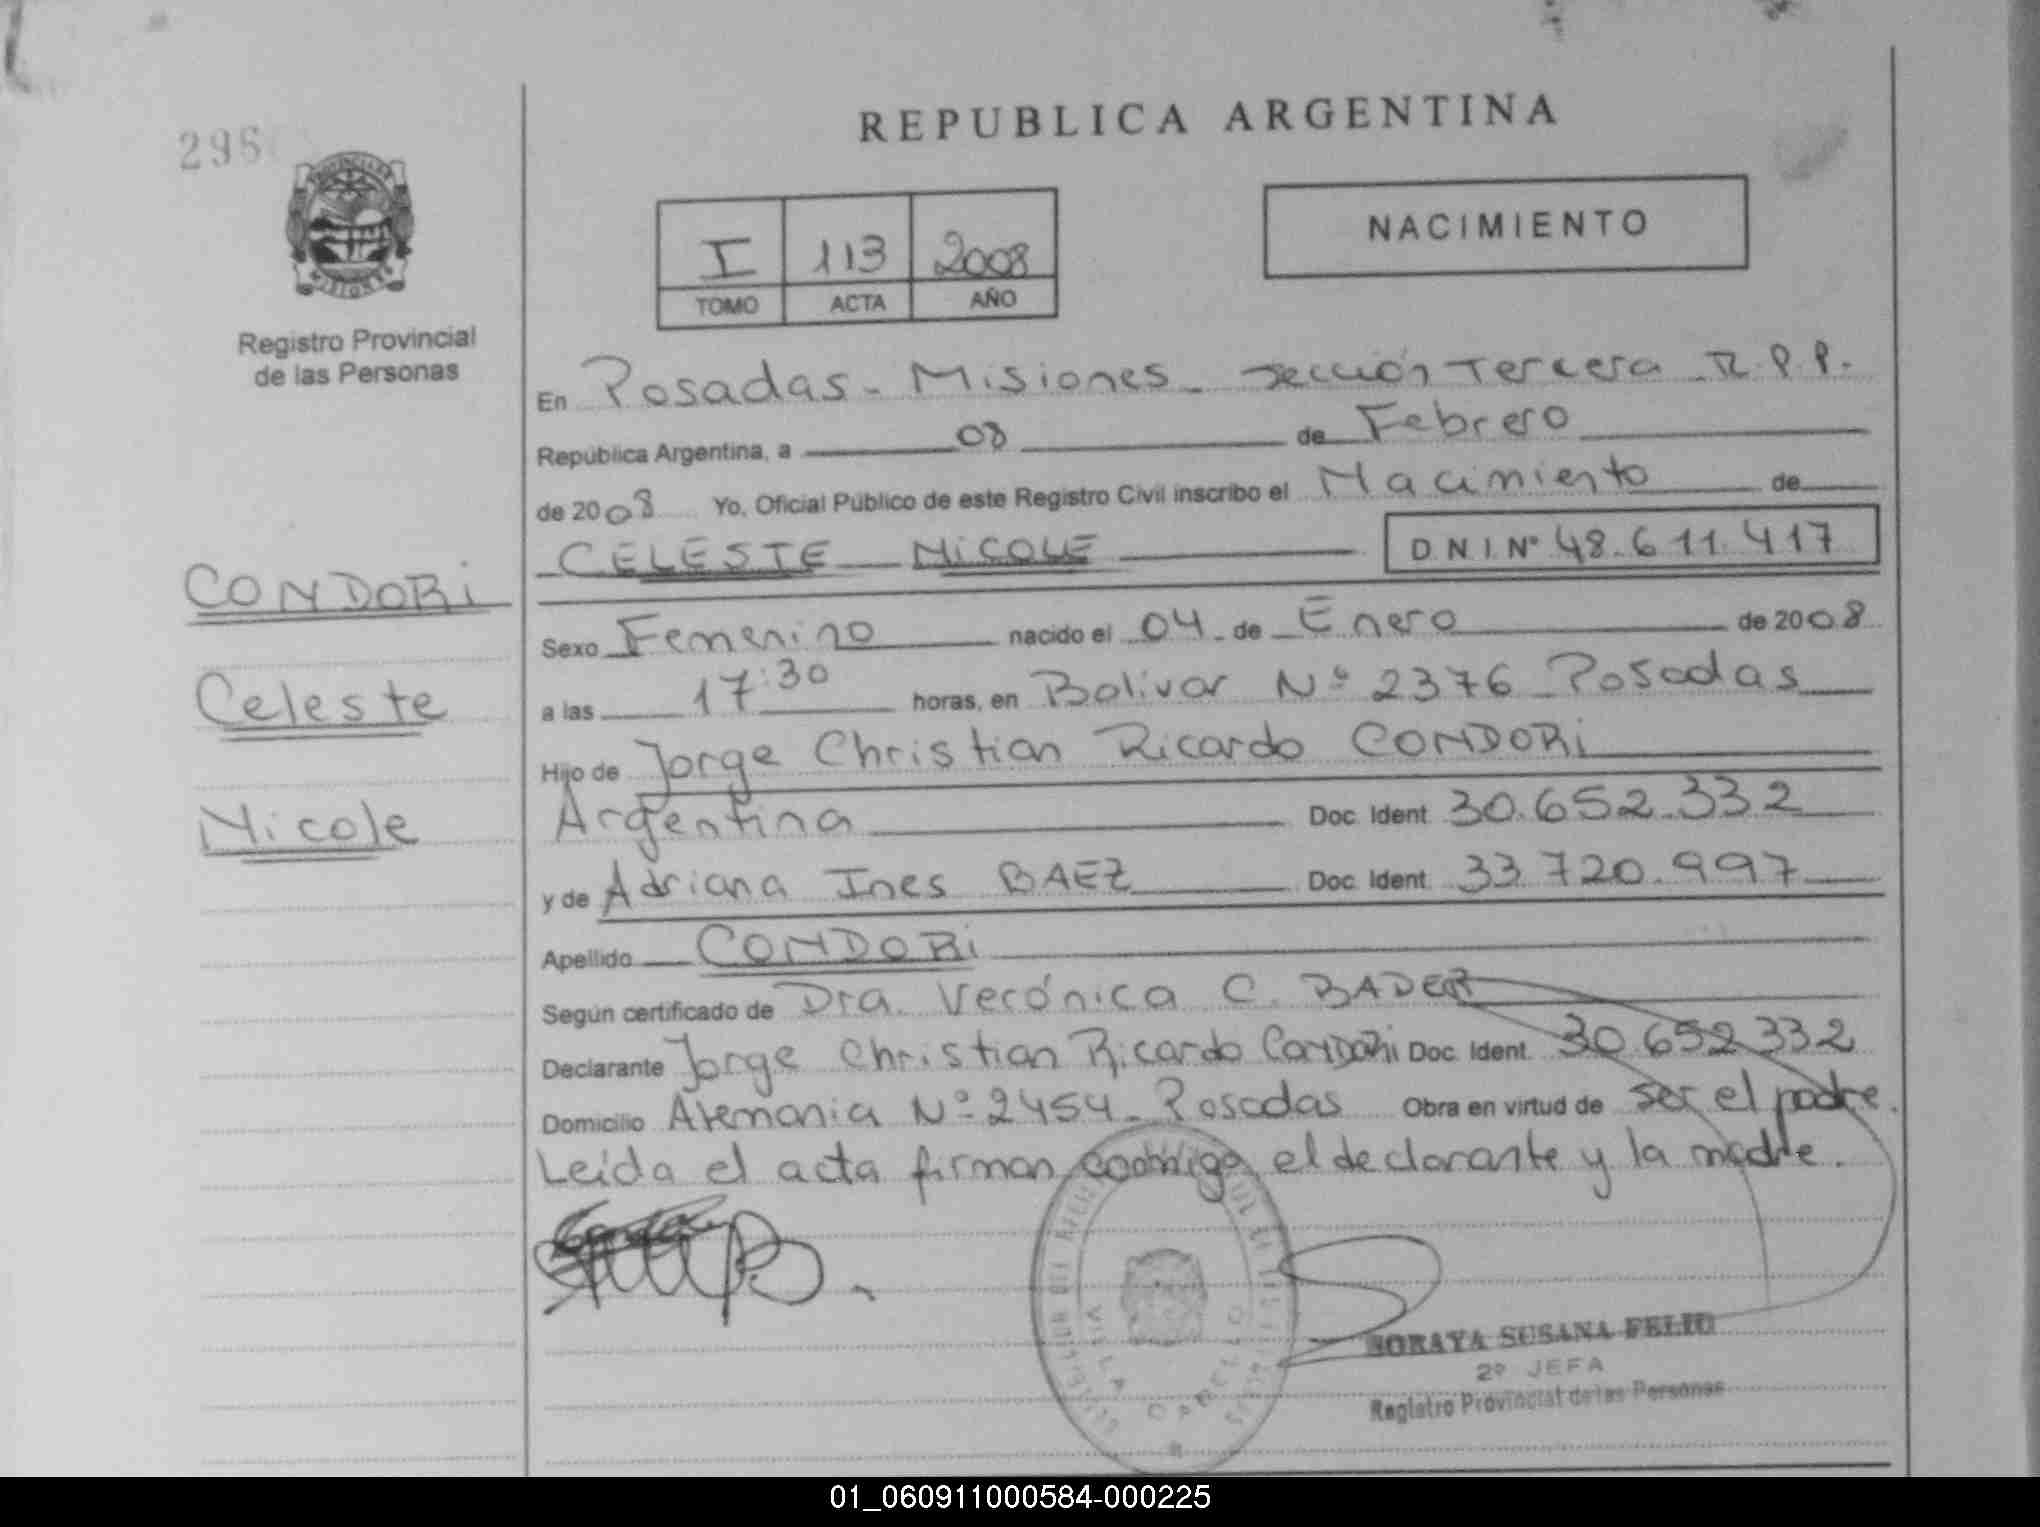 REPUBLICA ARGENTINA
295
PROVINCIA DE
MISIONES
Registro Provincial
de las Personas
I 113 2008
TOMO ACTA AÑO
NACIMIENTO
En Posadas - Misiones - Sección Tercera R.P.P.
República Argentina, a 08 de Febrero
de 2008 Yo, Oficial Público de este Registro Civil inscribo el Nacimiento de
CELESTE NICOLE D N I Nº 48.611.417
CONDORI
Celeste
Nicole
Sexo Femenino nacido el 04 de Enero de 2008
a las 17:30 horas, en Bolivar Nº 2376 Posadas
Hijo de Jorge Christian Ricardo CONDORI
Argentina Doc. Ident. 30.652.332
y de Adriana Ines BAEZ Doc. Ident. 33.720.997
Apellido CONDORI
Según certificado de Dra. Verónica C. BADER
Declarante Jorge Christian Ricardo CONDORI Doc. Ident. 30.652.332
Domicilio Alemania Nº 2454 - Posadas Obra en virtud de ser el padre.
Leída el acta firman conmigo el declarante y la madre.
VILLA
SORAYA SUSANA FELIU
2º JEFA
Registro Provincial de las Personas
01_060911000584-000225